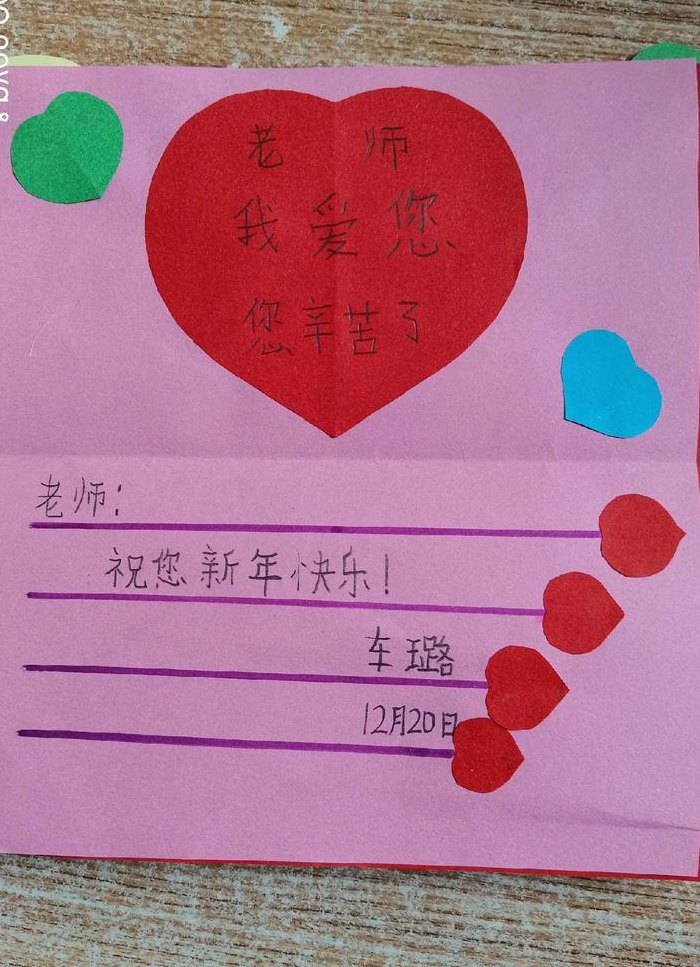 老师
我爱您
您辛苦了
老师：
祝您新年快乐！
车璐
12月20日